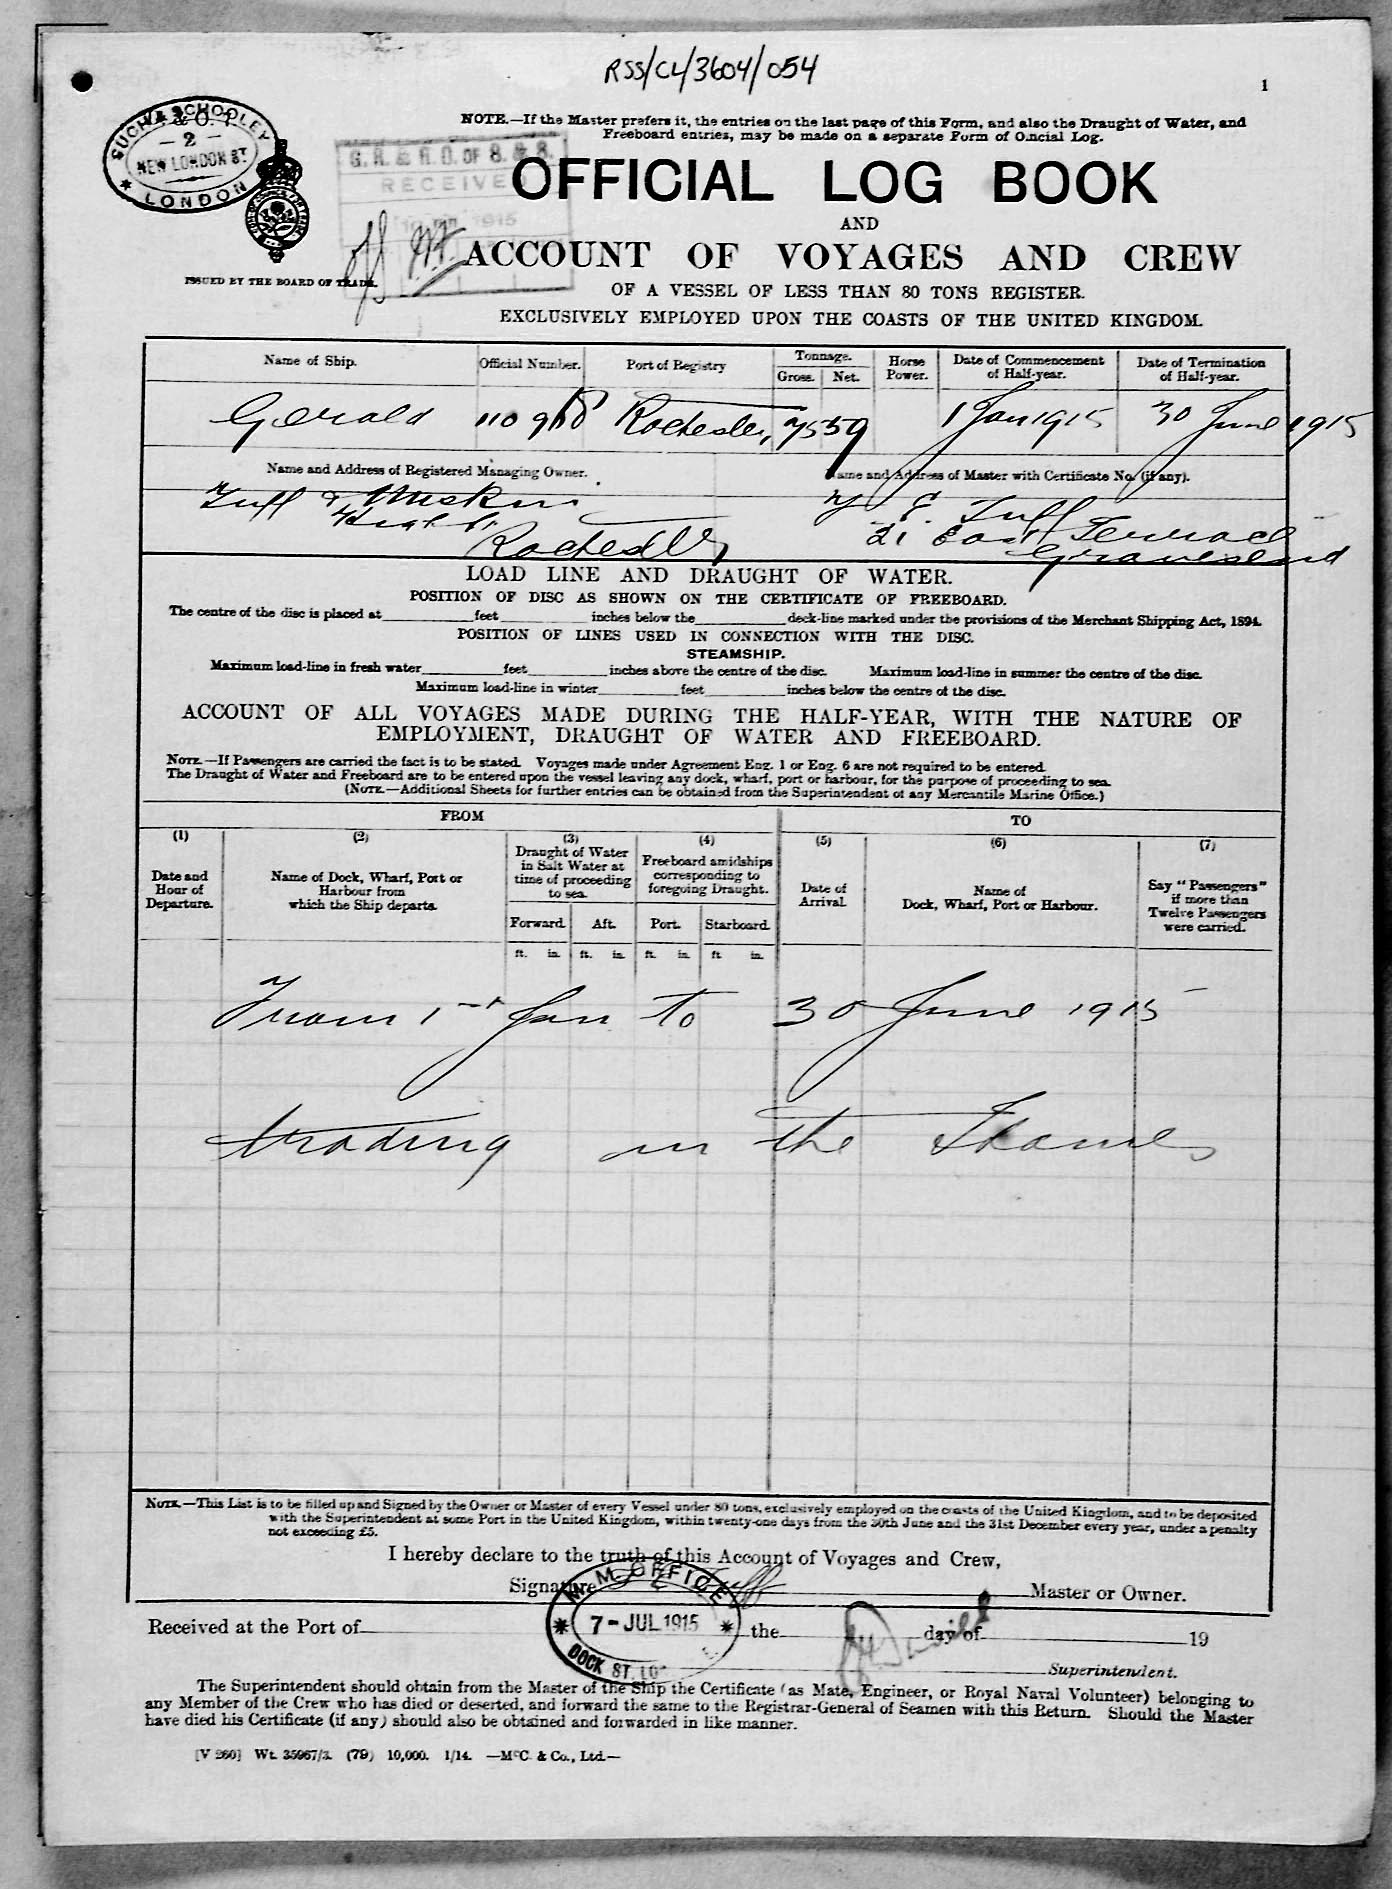 RSS/CL/3604/054
1
SUCH & SCHOOLEY
2
NEW LONDON ST
LONDON
G. R. & R. O. OF S. & S.
RECEIVED
1915
NOTE.—If the Master prefers it, the entries on the last page of this Form, and also the Draught of Water, and
Freeboard entries, may be made on a separate Form of Official Log.
OFFICIAL LOG BOOK
AND
ACCOUNT OF VOYAGES AND CREW
ISSUED BY THE BOARD OF TRADE.
OF A VESSEL OF LESS THAN 80 TONS REGISTER.
EXCLUSIVELY EMPLOYED UPON THE COASTS OF THE UNITED KINGDOM.
Name of Ship. Official Number. Port of Registry Tonnage. Gross. Net. Horse Power. Date of Commencement of Half-year. Date of Termination of Half-year.
Gerald Rochester 75 59 1 Jan 1915 30 June 1915
Name and Address of Registered Managing Owner. Name and Address of Master with Certificate No. (if any).
Tuff & Miskin E. Tuff
High St 21 East Terrace
Rochester Gravesend
LOAD LINE AND DRAUGHT OF WATER.
POSITION OF DISC AS SHOWN ON THE CERTIFICATE OF FREEBOARD.
The centre of the disc is placed at feet inches below the deck-line marked under the provisions of the Merchant Shipping Act, 1894.
POSITION OF LINES USED IN CONNECTION WITH THE DISC.
STEAMSHIP.
Maximum load-line in fresh water feet inches above the centre of the disc. Maximum load-line in summer the centre of the disc.
Maximum load-line in winter feet inches below the centre of the disc.
ACCOUNT OF ALL VOYAGES MADE DURING THE HALF-YEAR, WITH THE NATURE OF
EMPLOYMENT, DRAUGHT OF WATER AND FREEBOARD.
NOTE.—If Passengers are carried the fact is to be stated. Voyages made under Agreement Eng. 1 or Eng. 6 are not required to be entered.
The Draught of Water and Freeboard are to be entered upon the vessel leaving any dock, wharf, port or harbour, for the purpose of proceeding to sea.
(NOTE.—Additional Sheets for further entries can be obtained from the Superintendent of any Mercantile Marine Office.)
FROM TO
(1) (2) (3) (4) (5) (6) (7)
Date and Hour of Departure.
Name of Dock, Wharf, Port or Harbour from which the Ship departs.
Draught of Water in Salt Water at time of proceeding to sea.
Freeboard amidships corresponding to foregoing Draught.
Date of Arrival.
Name of Dock, Wharf, Port or Harbour.
Say "Passengers" if more than Twelve Passengers were carried.
Forward. Aft. Port. Starboard.
ft. in. ft. in. ft. in. ft in.
From 1st Jan To 30 June 1915
trading in the Thames
NOTE.—This List is to be filled up and Signed by the Owner or Master of every Vessel under 80 tons, exclusively employed on the coasts of the United Kingdom, and to be deposited
with the Superintendent at some Port in the United Kingdom, within twenty-one days from the 30th June and the 31st December every year, under a penalty
not exceeding £5.
I hereby declare to the truth of this Account of Voyages and Crew,
Signature E Tuff Master or Owner.
M. M. OFFICE
7-JUL 1915
DOCK ST. LO
Received at the Port of the day of 19
Superintendent.
The Superintendent should obtain from the Master of the Ship the Certificate (as Mate, Engineer, or Royal Naval Volunteer) belonging to
any Member of the Crew who has died or deserted, and forward the same to the Registrar-General of Seamen with this Return. Should the Master
have died his Certificate (if any) should also be obtained and forwarded in like manner.
[V 260] Wt. 35967/3. (79) 10,000. 1/14. —McC. & Co., Ltd.—